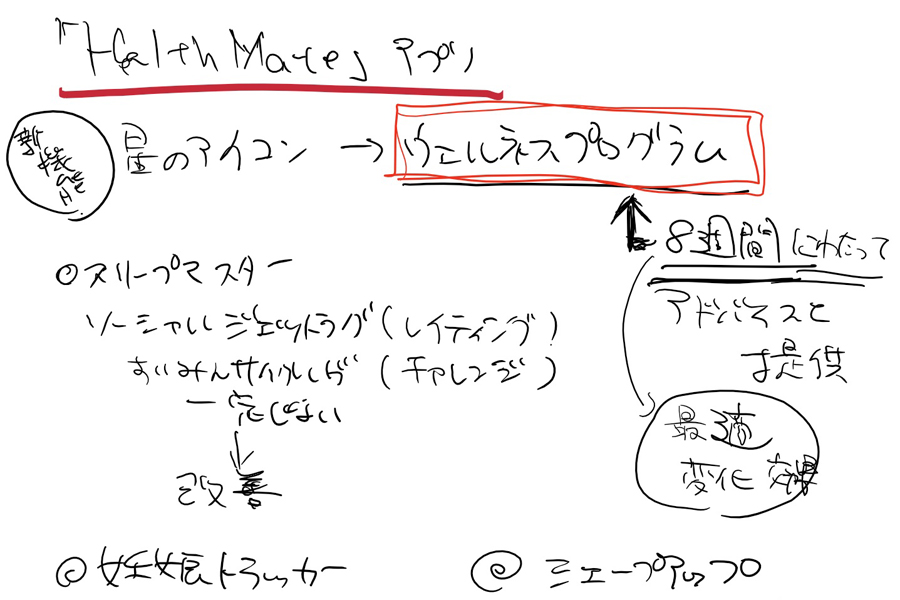 「Health Mate」アプリ
新機能
星のアイコン → ウェルネスプログラム
8週間にわたって
アドバイスと
提供
最適
変化 効果
◎スリープマスター
ソーシャルジェットラグ(レイティング)
すいみんサイクルが(チャレンジ)
一定じない
↓
改善
◎妊娠トラッカー
◎シェープアップ